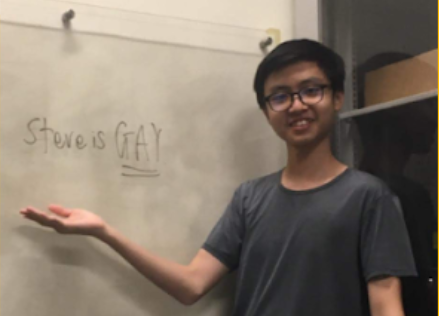 Steve is GAY